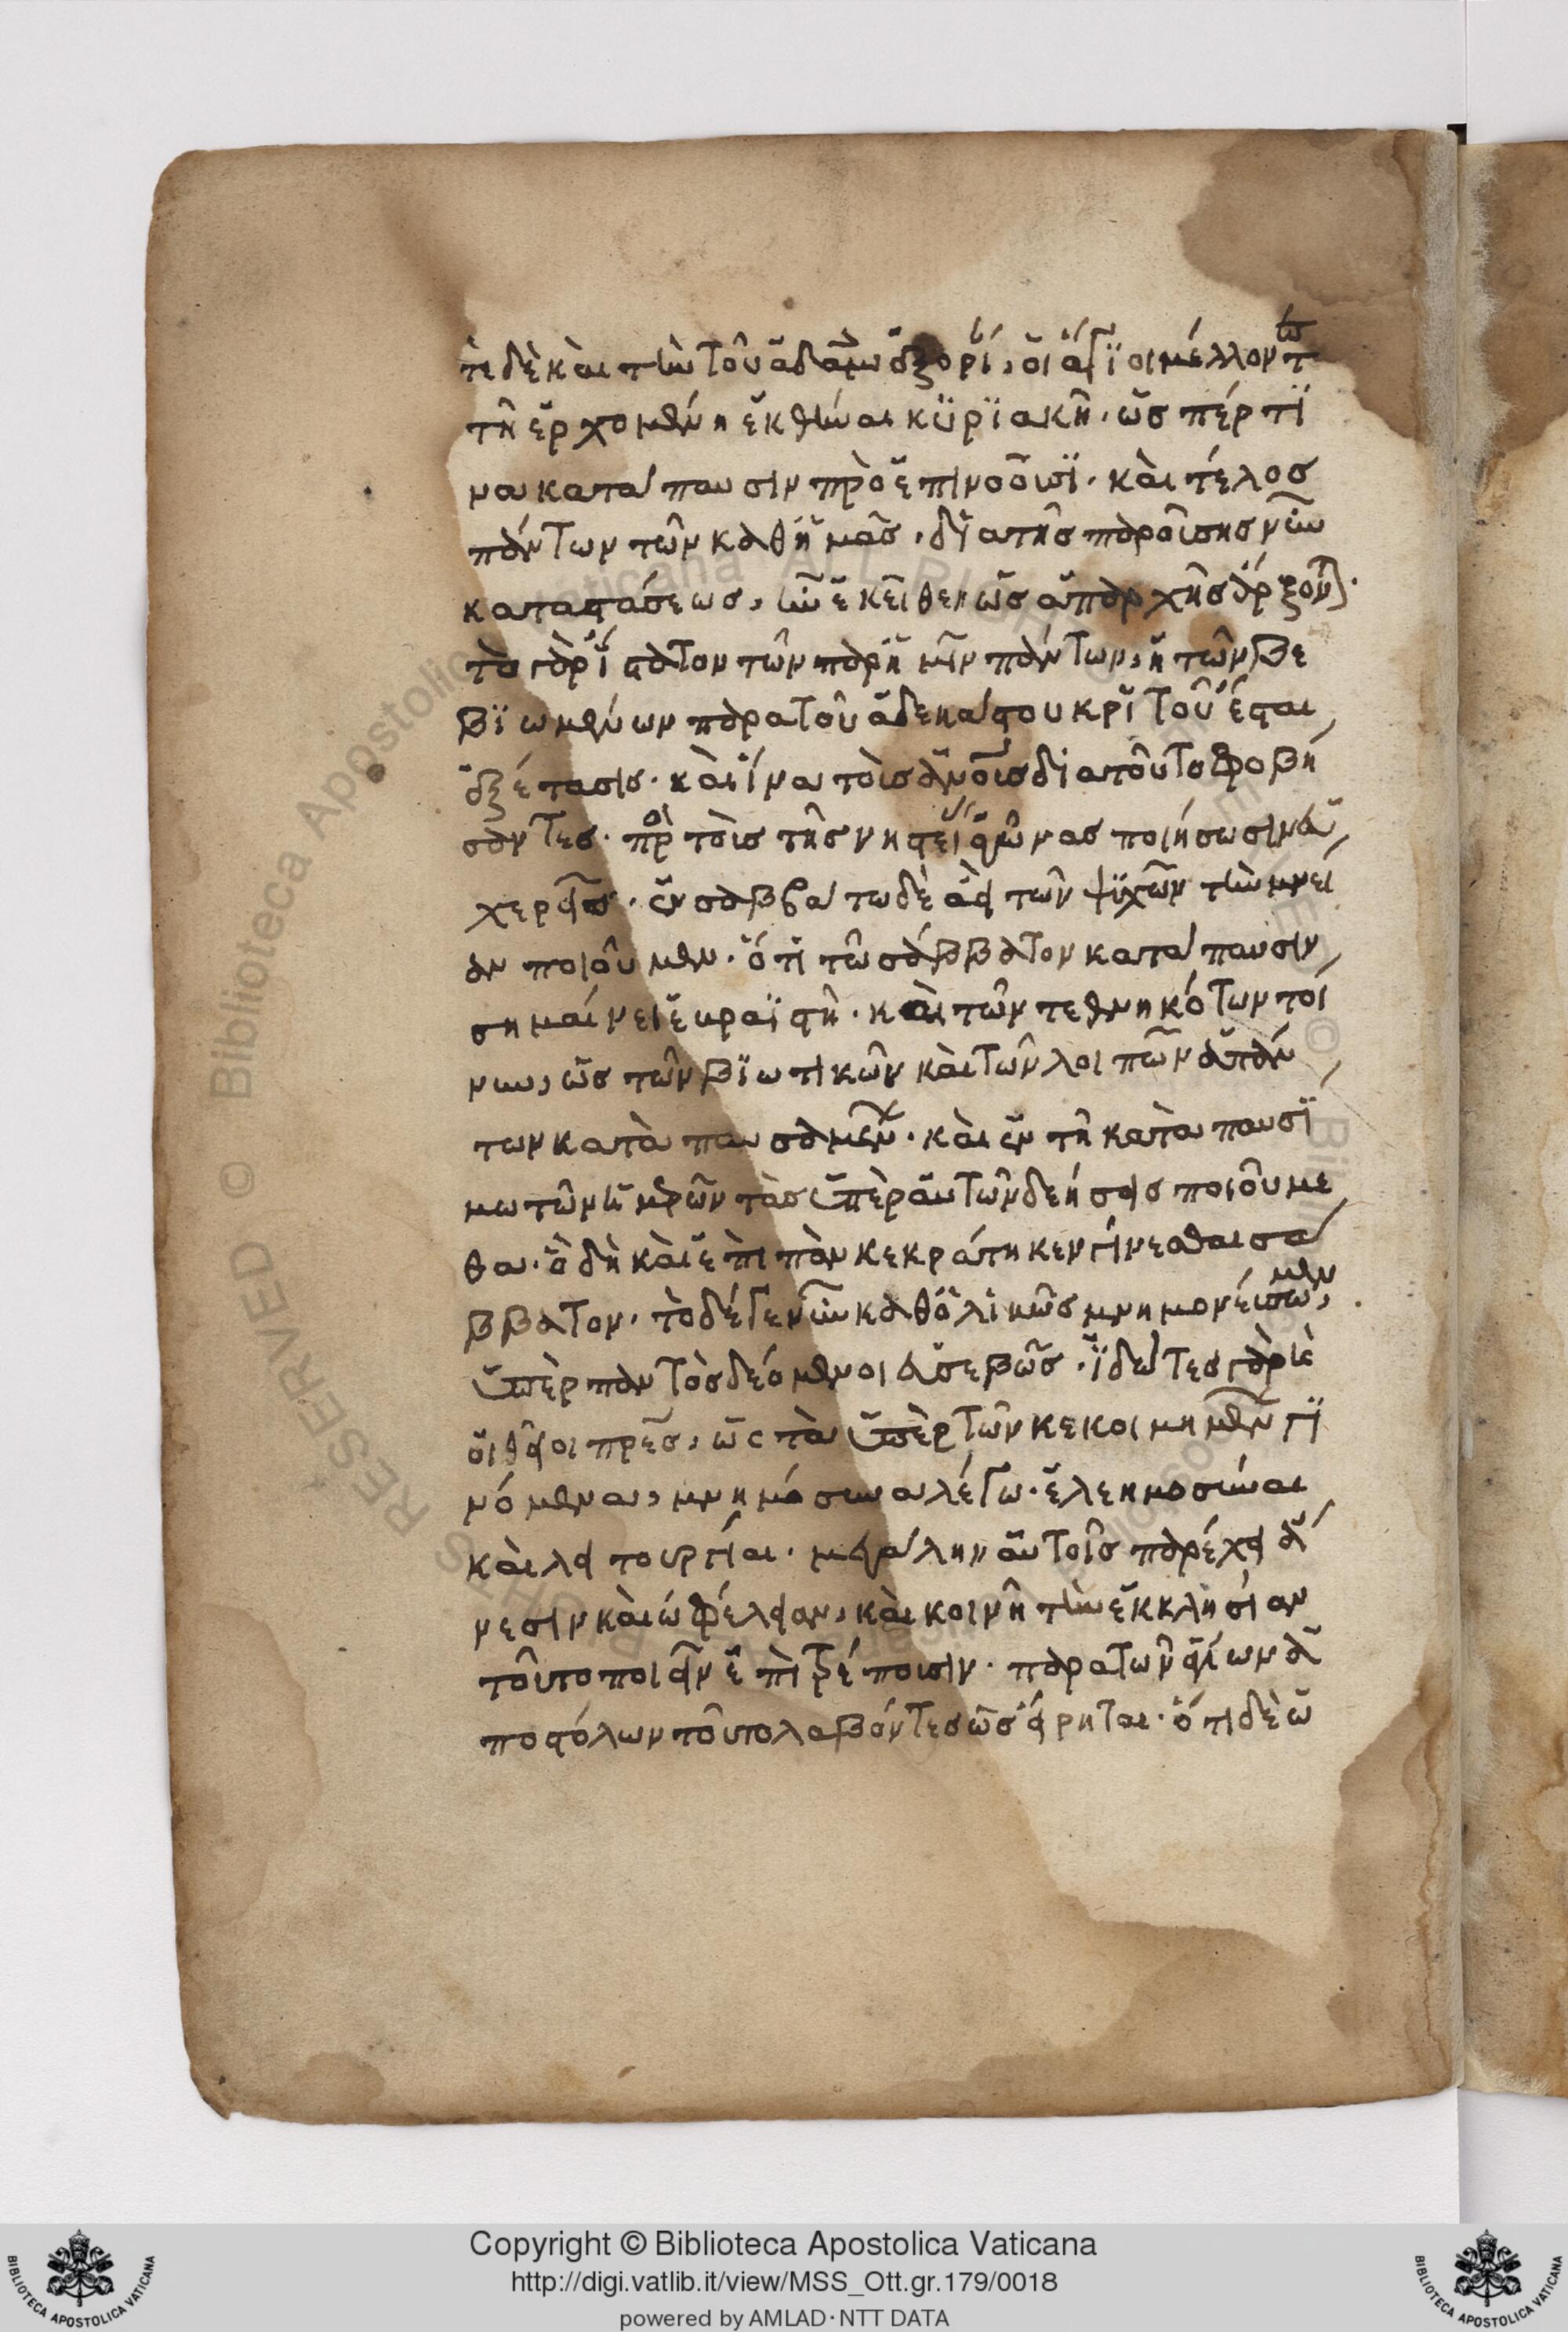 τὶ δὲ καὶ τὴν τοῦ ἀδὰμ ἐξορί, οἱ ἅγϊοι μέλλοντ
τῆ ἐρχομένη ἐκθεῖναι κϋρϊακῆ. ὥσπέρ τϊ
να κατάπαυσιν προεπινοοῦσϊ. καὶ τέλος
πάντων τῶν καθ ἡμᾶς. διὰ τῆς παρούσης νῦν
καταστάσεως, ἵν ἐκεῖθεν ὡς ἀπ ἀρχῆς ἄρξοντ.
τὸ γὰρ ὕστατον τῶν παρ ἡμῖν πάντων, ἡ τῶν βε
βϊωμένων παρὰ τοῦ ἀδεκάστου κριτοῦ ἔσται
ἐξέτασις. καὶ ἵνα τοὺς ἀνοῦς διὰ τοῦτο φοβή
σαντες. πρὸ τοὺς τῆς νηστεί ἀγῶνας ποιήσωσιν εὐ
χερεῖς. ἐν σαββάτω δὲ ἀεὶ τῶν ψϋχῶν τὴν μνεί
αν ποιοῦμεν. ὅτι τὸ σάββατον κατάπαυσιν
σημαίνει ἑβραϊστῆ. καὶ τῶν τεθνηκότων τοί
νυν, ὡς τῶν βϊωτικῶν καὶ τῶν λοιπῶν ἁπάν
των καταπαυσαμέν. καὶ ἐν τῆ καταπαυσϊ
μω τῶν ἡμερῶν τὰς ὑπὲρ αὐτῶν δεήσεις ποιούμε
θα. ὃ δὴ καὶ ἐπὶ πᾶν κεκράτηκεν γίνεσθαι σά
ββατον. τὸ δέ γε νῦν καθολικῶς μνημονεύομεν,
ὑπὲρ παντὸς δεόμενοι εὐσεβῶς. ϊδότες γὰρ
οἱ θεῖοι πρες, ὡς τὰ ὑπὲρ τῶν κεκοιμημέν γϊ
νόμενα, μνημόσυνα λέγω. ἐλεημοσύναι
καὶ λειτουργίαι. μεγάλην αὐτοῖς παρέχει ἄ
νεσιν καὶ ὠφέλειαν, καὶ κοινῆ τὴν ἐκκλησίαν
τοῦτο ποιεῖν ἐπιτρέπουσιν. παρὰ τῶν ἁγίων ἀ
ποστόλων τοῦτο λαβόντες ὡς εἴρηται. ὅτι δὲ ὠ
Copyright © Biblioteca Apostolica Vaticana
http://digi.vatlib.it/view/MSS_Ott.gr.179/0018
powered by AMLAD·NTT DATA